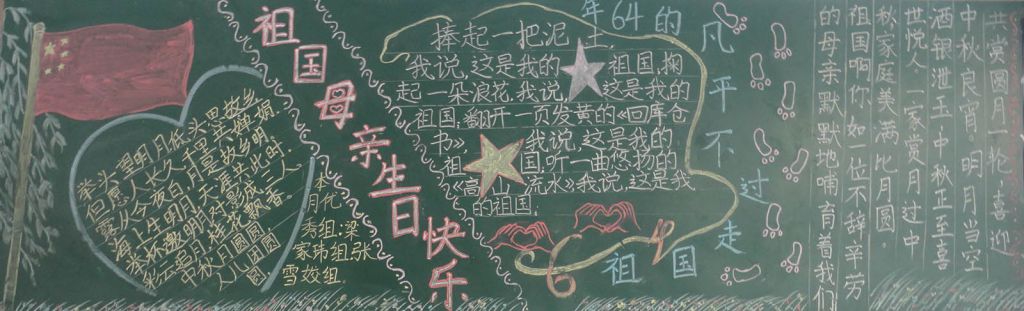 举头望明月低头思故乡
但愿人长久千里共婵娟
露从今夜白月是故乡明
海上生明月天涯共此时
举杯邀明月对影成三人
中秋月圆圆
人儿团团圆
本月化
秀组:梁
家玮组张
雪姣组.
祖国母亲生日快乐
捧起一把泥土.
我说,这是我的祖国,掬
起一朵浪花,我说,这是我的
祖国,翻开一页发黄的《四库仓
书》,我说,这是我的
祖国,听一曲悠扬的
《高山流水》我说,这是我
的祖国.
64
祖国
年64的
凡平不过走
共赏圆月一轮,喜迎
中秋良宵。明月当空
酒银泄玉,中秋正至喜
世悦人。一家赏月过中
秋家庭美满比月圆。
祖国啊,你如一位不辞辛劳
的母亲,默默地哺育着我们